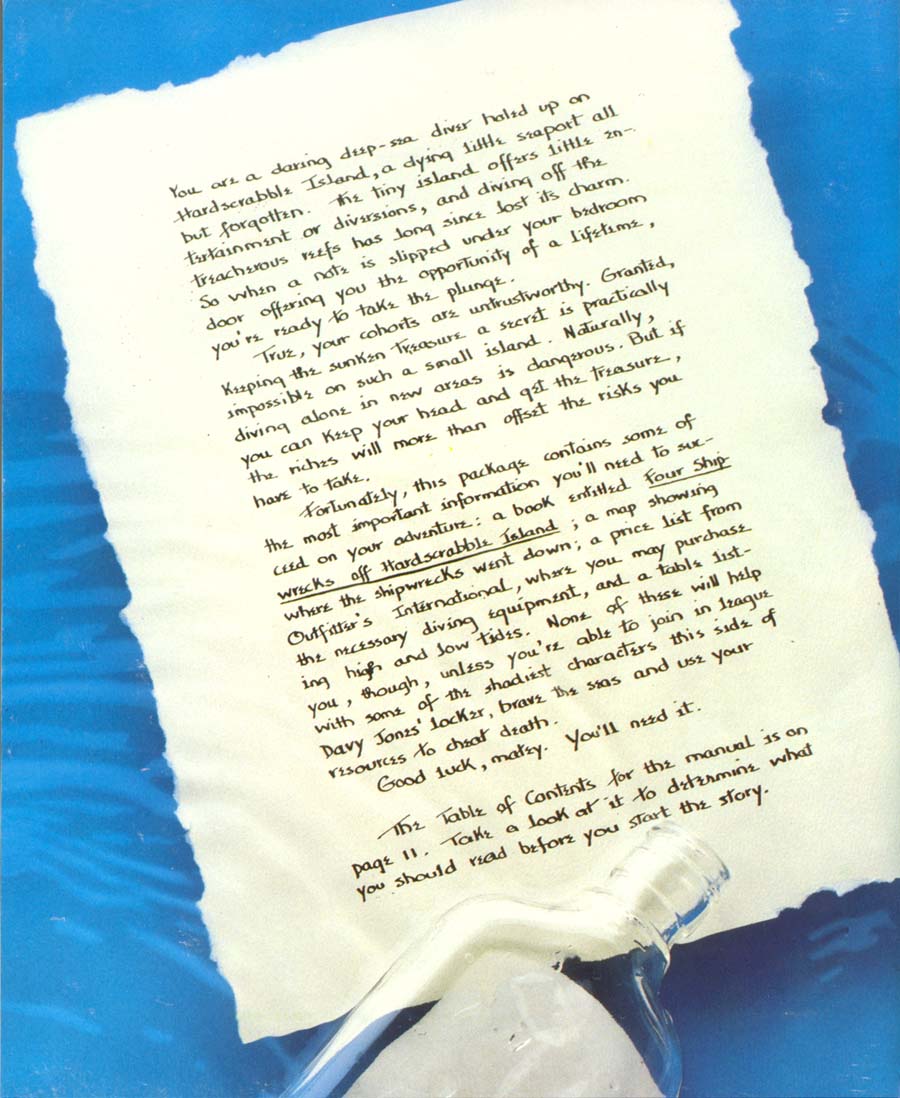 You are a daring deep-sea diver holed up on
Hardscrabble Island, a dying little seaport all
but forgotten. The tiny island offers little en-
tertainment or diversions, and diving off the
treacherous reefs has long since lost its charm.
So when a note is slipped under your bedroom
door offering you the opportunity of a lifetime,
you're ready to take the plunge.
True, your cohorts are untrustworthy. Granted,
keeping the sunken treasure a secret is practically
impossible on such a small island. Naturally,
diving alone in new areas is dangerous. But if
you can keep your head and get the treasure,
the riches will more than offset the risks you
have to take.
Fortunately, this package contains some of
the most important information you'll need to suc-
ceed on your adventure: a book entitled Four Ship-
wrecks off Hardscrabble Island; a map showing
where the shipwrecks went down; a price list from
Outfitter's International, where you may purchase
the necessary diving equipment, and a table list-
ing high and low tides. None of these will help
you, though, unless you're able to join in league
with some of the shadiest characters this side of
Davy Jones' locker, brave the seas and use your
resources to cheat death.
Good luck, matey. You'll need it.
The Table of Contents for the manual is on
page 11. Take a look at it to determine what
you should read before you start the story.